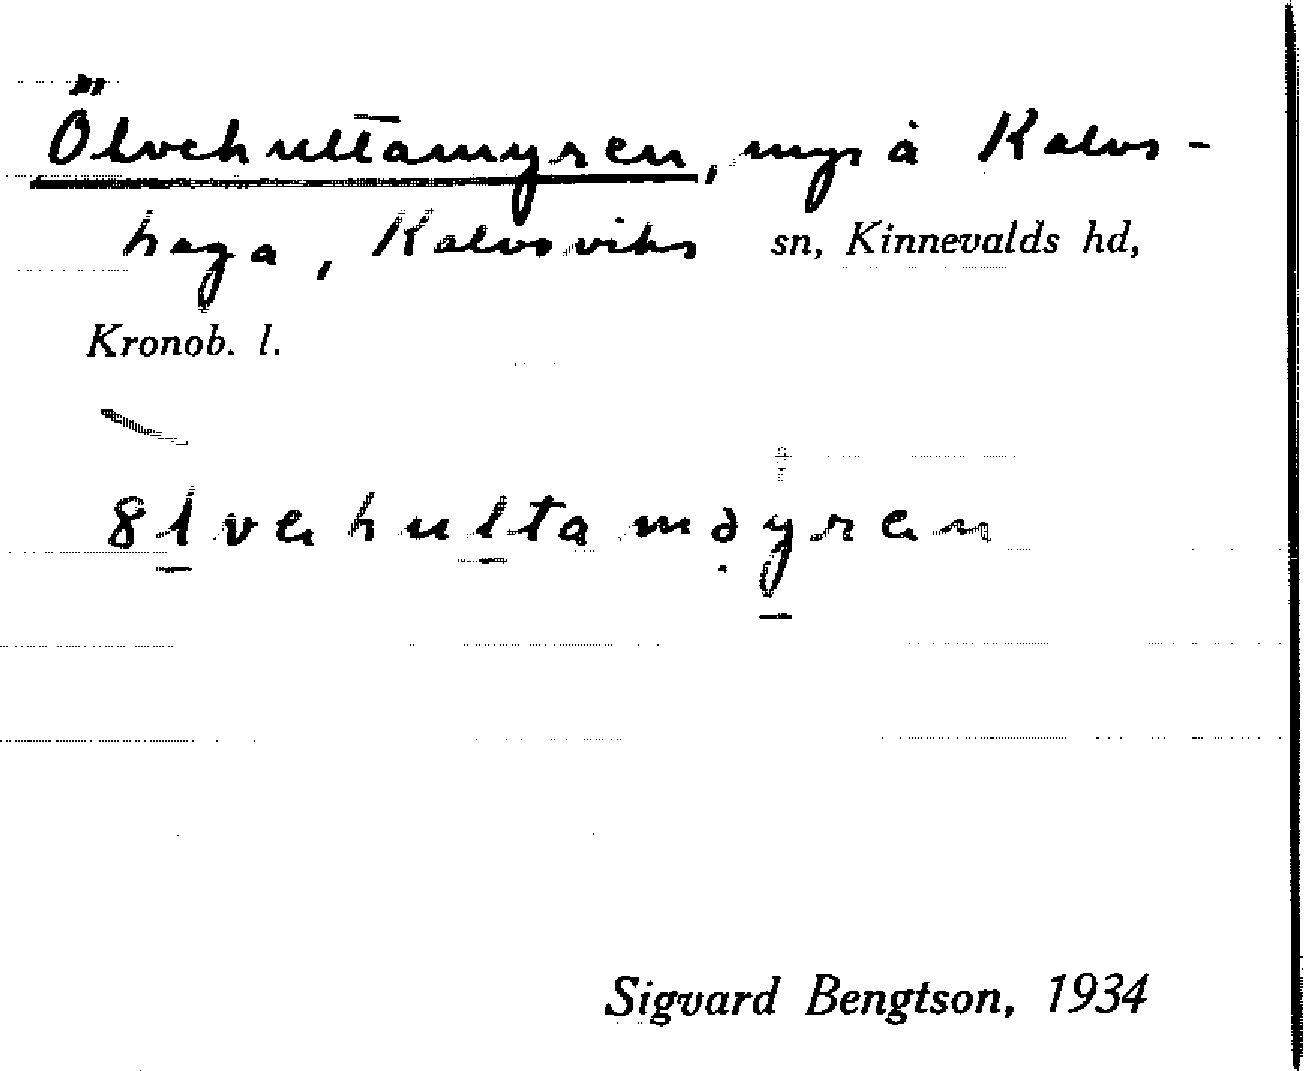 Ölvehultamyren, myr å Kalvs-
haga, Kalvsviks sn, Kinnevalds hd,
Kronob. l.
8lvehultaməyren
Sigvard Bengtson, 1934